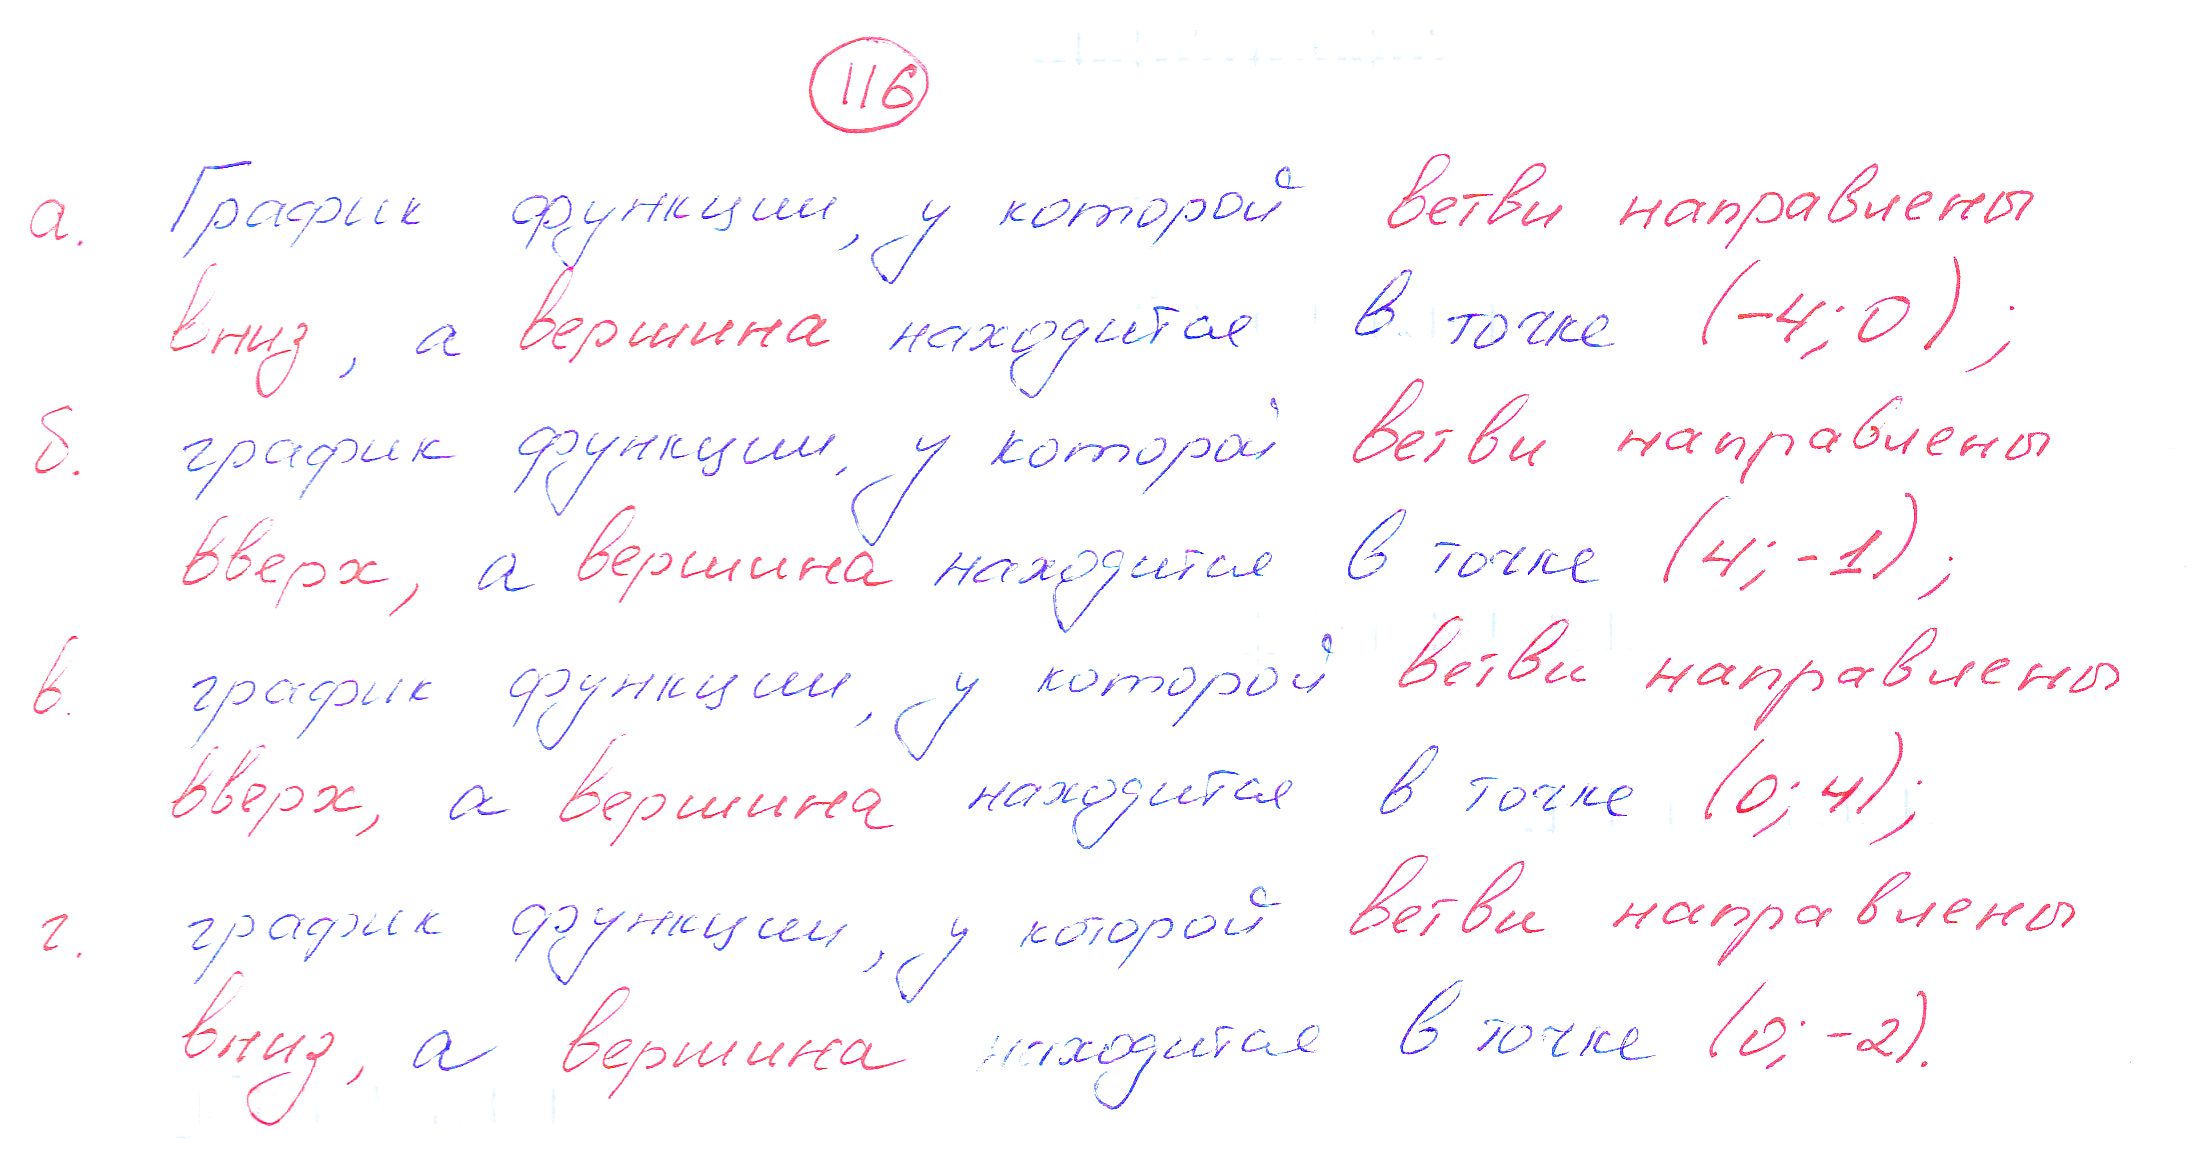 116
а. График функции, у которой ветви направлены
вниз, а вершина находится в точке (-4; 0);
б. график функции, у которой ветви направлены
вверх, а вершина находится в точке (4; -1);
в. график функции, у которой ветви направлены
вверх, а вершина находится в точке (0; 4);
г. график функции, у которой ветви направлены
вниз, а вершина находится в точке (0; -2).